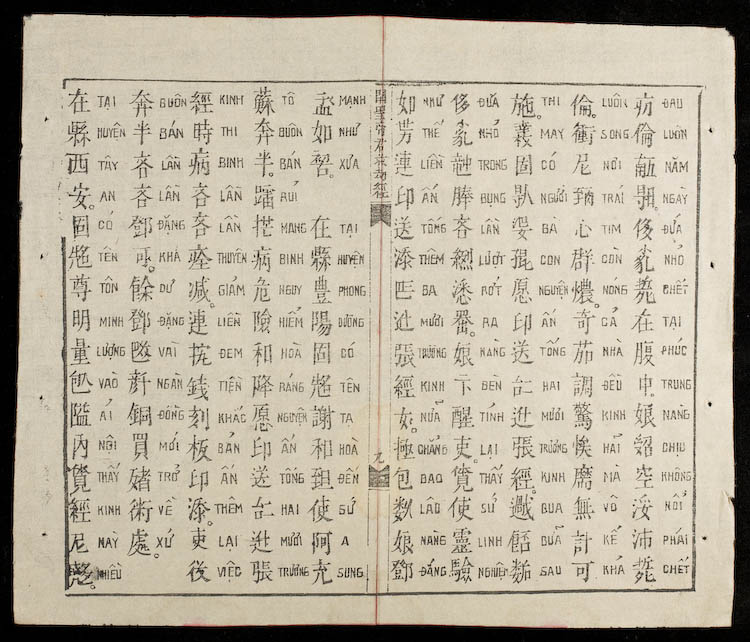 倫 在腹中。娘 空 沛
ĐAU LUÔN NĂM NGÀY ĐỨA NHỎ CHẾT TẠI PHÚC TRUNG NÀNG CHỊU KHÔNG NỔI PHẢI CHẾT
倫。衝尼 心群燶。奇茹調驚 麻無計可
LUÔN SONG NỔI TRÁI TIM CÒN NÓNG CẢ NHÀ ĐỀU KINH HÃI MÀ VÔ KẾ KHẢ
施。 固 愿印送𠄩𨑮張經。
THI MAY CÓ NGƯỜI BÀ CON NGUYỆN ẤN TỐNG HAI MƯƠI TRƯƠNG KINH BUA SAU
吝 娘卞醒吏。覽使靈驗
ĐỨA NHỎ TRONG BỤNG LẦN LƯỢT RỚT RA NÀNG BÈN TỈNH LẠI THẤY SỬ LINH NGHIỆM
如 連印送添𠀧𨑮張經女。極包数娘鄧
NHƯ THẾ LIỀN ẤN TỐNG THÊM BA MƯỜI TRƯƠNG KINH NỮA CHẲNG BAO LÂU NÀNG ĐẶNG
關聖帝君救劫經 九
孟如 在縣豊陽固 謝和 使阿充
MẠNH NHƯ XƯA TẠI HUYỆN PHONG DƯƠNG CÓ TÊN TẠ HOÀ ĐẾN SỨ A SUNG
蘇奔半。 病危險和降愿印送𠄩𨑮張
TÔ BUÔN BÁN RỦI MANG BINH NGUY HIỂM HOÀ GIÁNG NGUYỆN ẤN TỐNG HAI MƯƠI TRƯƠNG
經時病吝吝痊減。連 錢刻板印添。吏後
KINH THI BINH LẦN LẦN THUYÊN GIẢM LIỀN ĐEM TIỀN KHẮC BẢN ẤN THÊM LẠI VIỆC
奔半吝吝鄧可。餘鄧 銅買 術處。
BUÔN BÁN LẦN LẦN ĐẶNG KHẢ DƯ ĐẶNG VÀI NGÀN ĐỒNG MỚI TRỞ VỀ XỨ
在縣西安。固 尊明量 隘內覽經尼
TẠI HUYỆN TÂY AN CÓ TÊN TÔN MINH LƯỢNG VÀO ẢI NỘI THẤY KINH NÀY NHIỀU